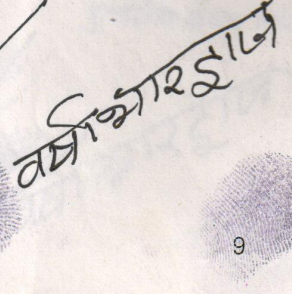 वर्षा भारद्वाज
9